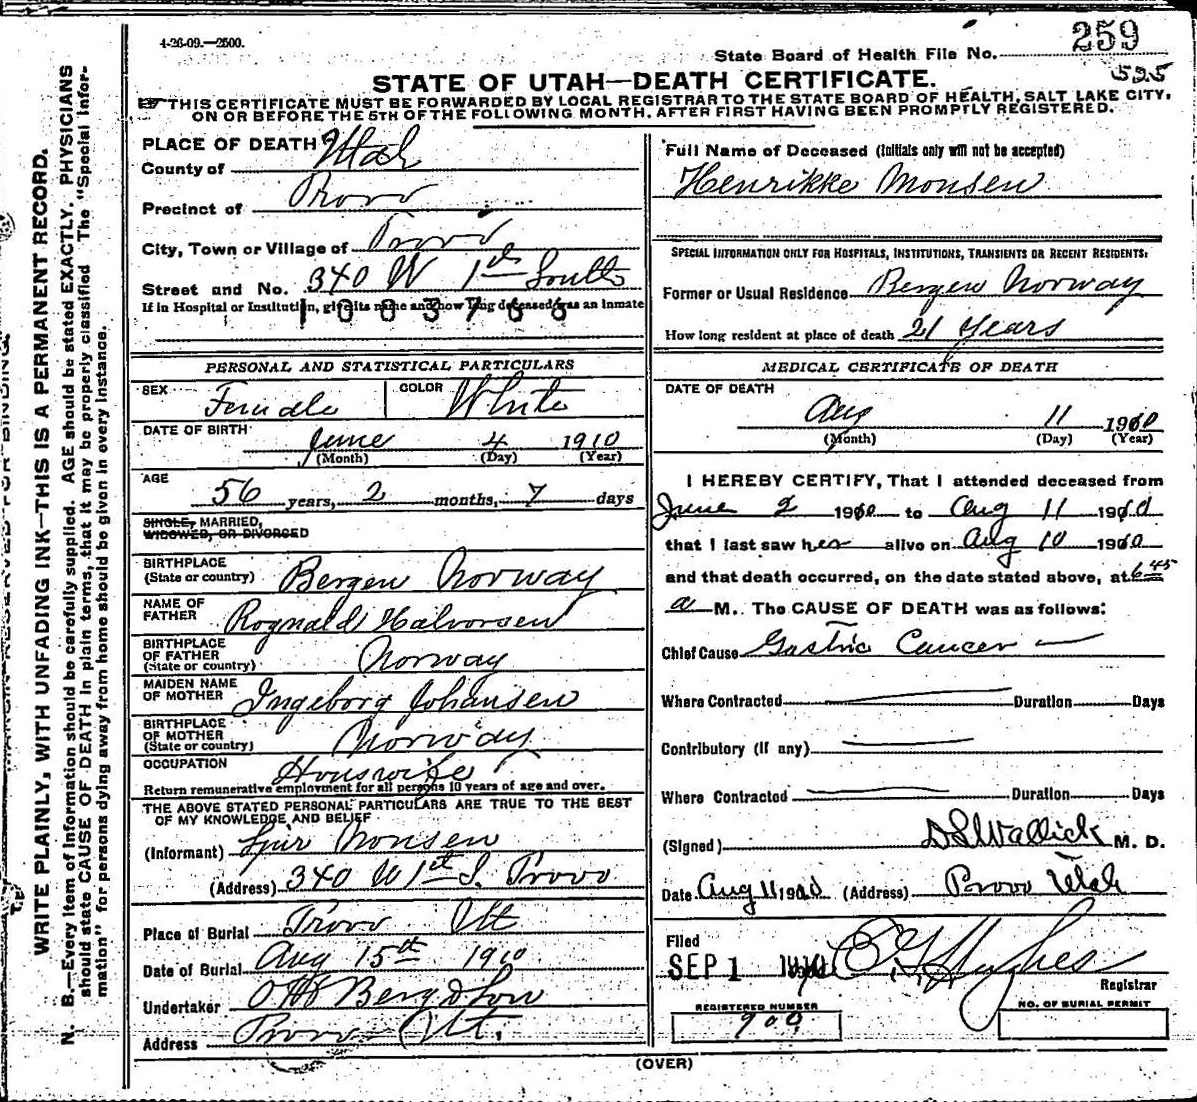 4-26-09.—2500.
259
State Board of Health File No.
525
STATE OF UTAH—DEATH CERTIFICATE.
THIS CERTIFICATE MUST BE FORWARDED BY LOCAL REGISTRAR TO THE STATE BOARD OF HEALTH, SALT LAKE CITY,
ON OR BEFORE THE 5TH OF THE FOLLOWING MONTH, AFTER FIRST HAVING BEEN PROMPTLY REGISTERED.
WRITE PLAINLY, WITH UNFADING INK—THIS IS A PERMANENT RECORD.
N. B.—Every item of information should be carefully supplied. AGE should be stated EXACTLY. PHYSICIANS
should state CAUSE OF DEATH in plain terms, that it may be properly classified. The "Special Infor-
mation" for persons dying away from home should be given in every instance.
PLACE OF DEATH
County of Utah
Precinct of Provo
City, Town or Village of Provo
Street and No. 340 W 1st South
If in Hospital or Institution, give its name and how long deceased was an inmate
1003768
PERSONAL AND STATISTICAL PARTICULARS
SEX Female COLOR White
DATE OF BIRTH June 4 1910
(Month) (Day) (Year)
AGE 56 years, 2 months, 7 days
SINGLE, MARRIED,
WIDOWED, OR DIVORCED
BIRTHPLACE
(State or country) Bergen Norway
NAME OF
FATHER Rognald Halvorsen
BIRTHPLACE
OF FATHER
(State or country) Norway
MAIDEN NAME
OF MOTHER Ingeborg Johansen
BIRTHPLACE
OF MOTHER
(State or country) Norway
OCCUPATION Houswife
Return remunerative employment for all persons 10 years of age and over.
THE ABOVE STATED PERSONAL PARTICULARS ARE TRUE TO THE BEST
OF MY KNOWLEDGE AND BELIEF
(Informant) Monsen
(Address) 340 W 1st S. Provo
Place of Burial Provo Ut
Date of Burial Aug 15th 1910
Undertaker Berg & Son
Address Provo Ut.
Full Name of Deceased (Initials only will not be accepted)
Henrikke Monsen
SPECIAL INFORMATION ONLY FOR HOSPITALS, INSTITUTIONS, TRANSIENTS OR RECENT RESIDENTS:
Former or Usual Residence Bergen Norway
How long resident at place of death 21 Years
MEDICAL CERTIFICATE OF DEATH
DATE OF DEATH
Aug 11 1910
(Month) (Day) (Year)
I HEREBY CERTIFY, That I attended deceased from
June 2 1910 to Aug 11 1910
that I last saw her alive on Aug 10 1910
and that death occurred, on the date stated above, at 6 45
a M. The CAUSE OF DEATH was as follows:
Chief Cause Gastric Cancer
Where Contracted Duration Days
Contributory (If any)
Where Contracted Duration Days
(Signed) M. D.
Date Aug 11 1910 (Address) Provo Utah
Filed
SEP 1 1910 Hughes
Registrar
REGISTERED NUMBER
909
NO. OF BURIAL PERMIT
(OVER)